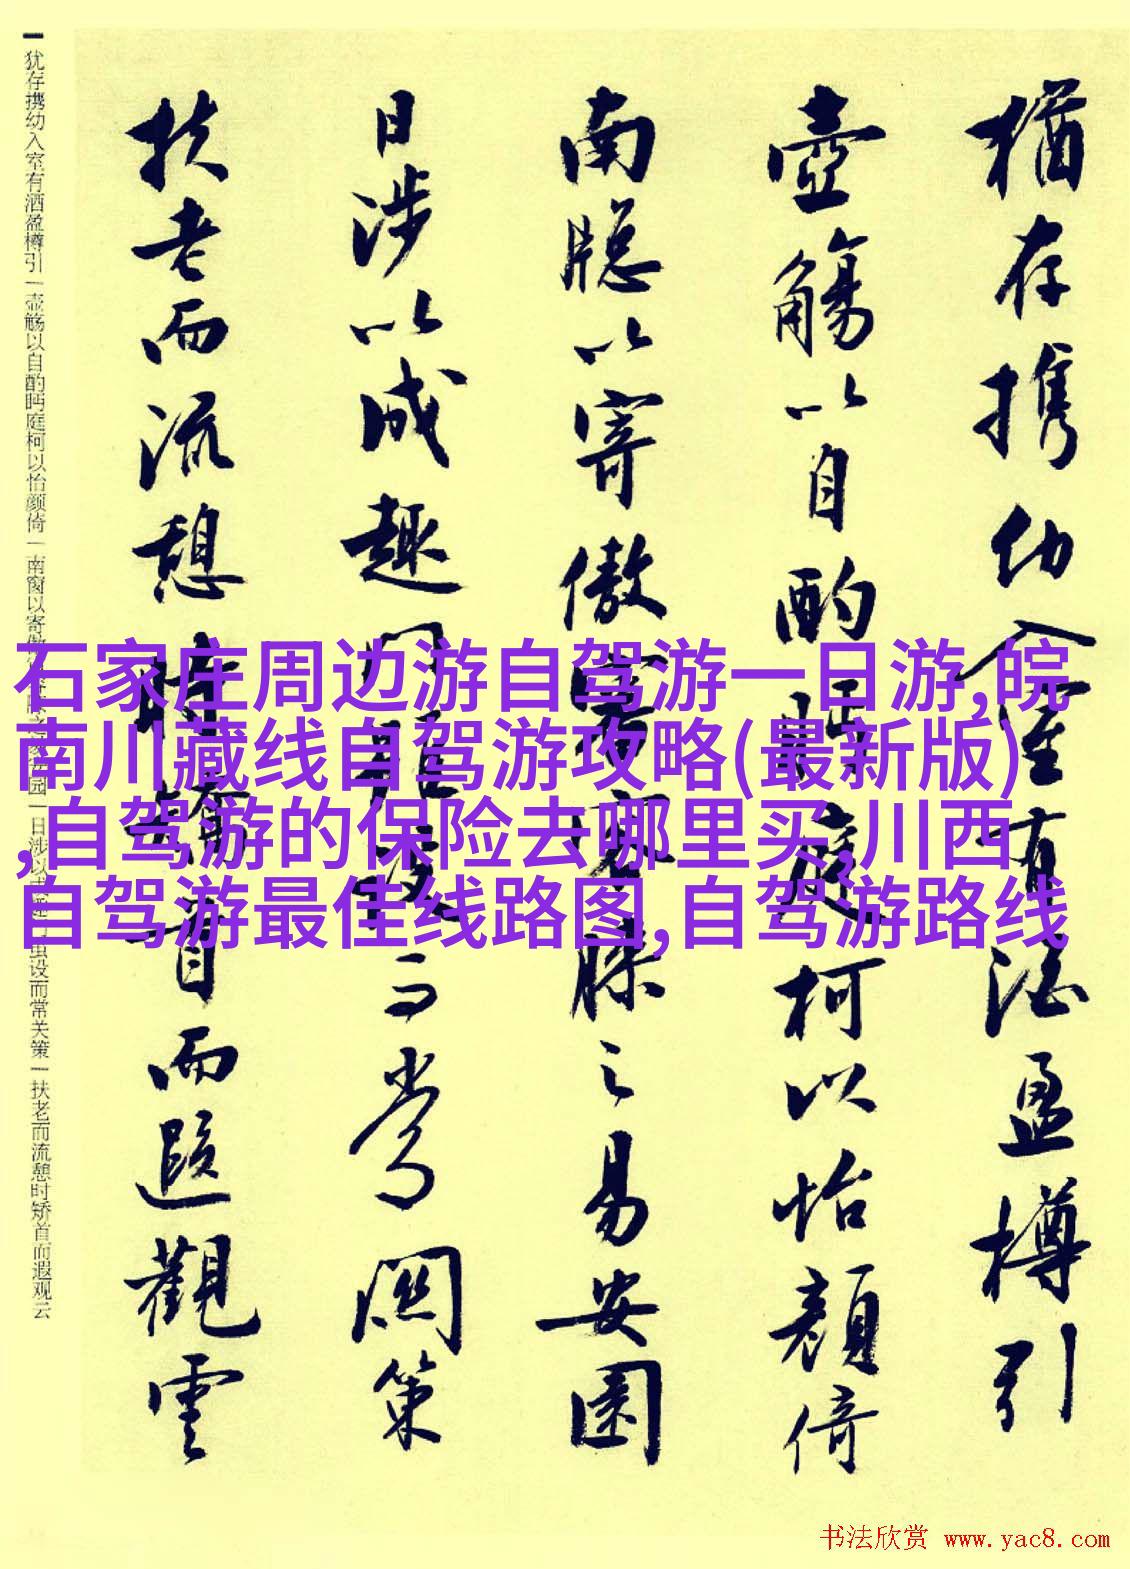 猶存携幼入室有酒盈樽引
壺觴以自酌眄庭柯以怡顏倚
南牕以寄傲審容膝之易安園
日涉以成趣門雖設而常關策
扶老而流憩時矯首而遐觀雲
犹存携幼入室有洒盈樽引|壶觞以自酌眄庭柯以怡颜倚|南窗以寄傲审容膝之易安园|日涉以成趣门虽设而常关策|扶老而流憩时矫首而遐观云
石家庄周边游自驾游一日游,皖
南川藏线自驾游攻略(最新版)
,自驾游的保险去哪里买,川西
自驾游最佳线路图,自驾游路线
书法欣赏 www.yac8.com